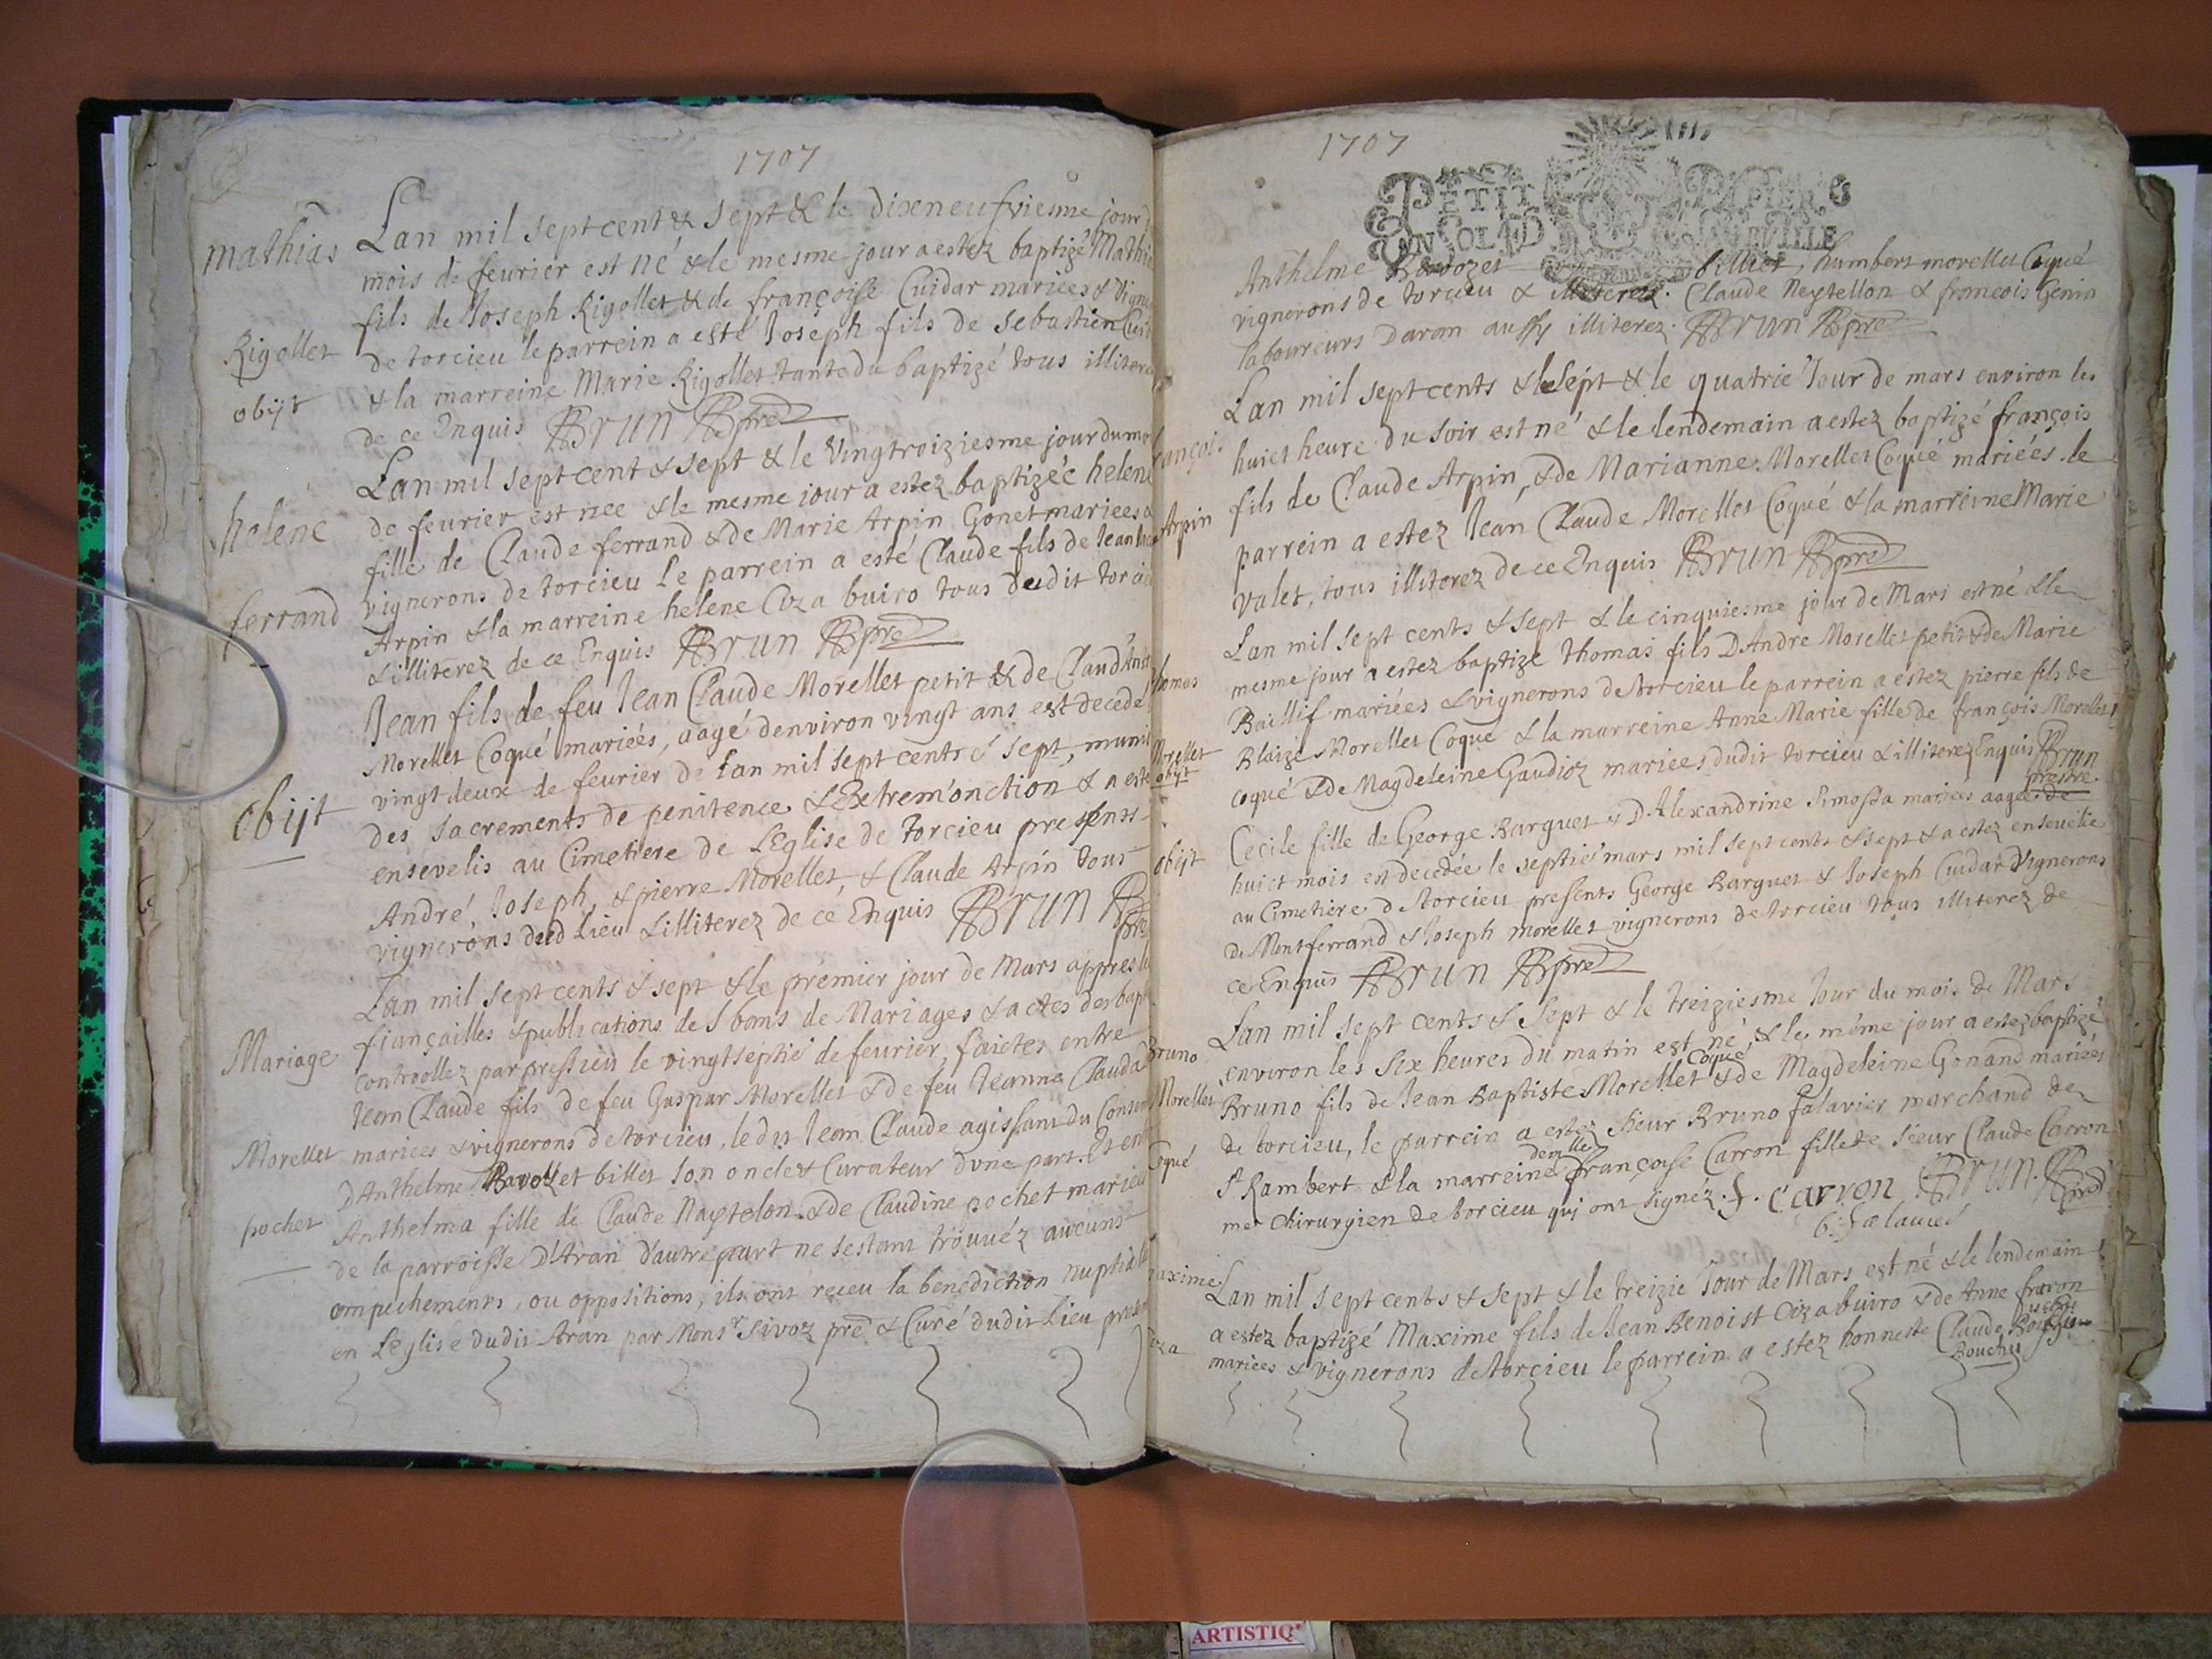 1707
mathias
Lan mil sept cent & sept & le dixneufviesme jour
mois de feurier est né & le mesme jour a estez baptizé Mathi
fils de Joseph Rigollet & de françoise Cuidar mariées & vigne
Rigollet
de torcieu le parrein a esté Joseph fils de sebastien Cuid
obijt
& la marreine Marie Rigollet tante du baptizé tous illitere
de ce Enquis Brun pre
Lan mil sept cent & sept & le Vingtroiziesme jour du mo
helene
de feurier est nee & le mesme jour a estez baptizéé helene
fille de Claude ferrand & de Marie Arpin Gonet mariees &
ferrand
vignerons de torcieu le parrein a esté Claude fils de Jean
Arpin & la marreine helene Ciza buiro tous dudit torcie
& illiterez de ce Enquis Brun pre
Jean fils de feu Jean Claude Morellet petit & de Claud
Morellet Coqué mariées, aagé denviron vingt ans est decedé
vingt deux de feurier de Lan mil sept cents & sept, munis
obijt
des sacrements de penitence & Extrem'onction & a esté
ensevelis au Cimetiere de LEglise de torcieu presents
André, Joseph, & pierre Morellet, & Claude Arpin tous
vignerons dud Lieu & illiterez de ce Enquis Brun
pre
Lan mil sept cents & sept & le premier jour de Mars appres les
Mariage
fiançailles & publications des bans de Mariages & actes des bap
controollez par pressieu le vingtseptie de feurier, faictes entre
Jean Claude fils de feu Gaspar Morellet & de feu Jeanne Clauda
Morellet
mariees & vignerons de torcieu, ledit Jean Claude agissant du Conse
DAnthelme Ravozet billet son oncle & Curateur dvne part. Et en
pochet
Anthelma fille de Claude Naytelon & de Claudine pochet mariees
de la parroisse D'Aran d'autre part ne sestant trouuéz aucuns
ompechements, ou oppositions, ils ont receu la benediction nuptiale
en LEglise dudit Aran par Monsr Sivoz pre & Curé dudit Lieu presen
1707
PETIT PAPIER
Anthelme Ravozet billiet, humbert morellet Coqué
vignerons de torcieu & illiterez. Claude Neytellon & francois Genin
laboureurs Daran aussy illiterez. Brun pre
Lan mil sept cents & le sept & le quatrie Jour de mars environ les
ançois
huict heure du soir est né & le lendemain a estez baptizé françois
fils de Claude Arpin, & de Marianne Morellet Coqué mariéés. le
Arpin
parrein a estez Jean Claude Morellet Coqué & la marreine Marie
valet, tous illiterez de ce Enquis Brun pre
Lan mil sept cents & sept & le cinquiesme jour de Mars est né & le
homas
mesme jour a estez baptizé thomas fils DAndre Morellet petit & de Marie
Baillif mariées & vignerons de torcieu le parrein a estez pierre fils de
Morellet
Blaize Morellet Coqué & la marreine Anne Marie fille de françois Morellet
obijt
coqué & de Magdeleine Gaudioz mariees dudit torcieu & illiterez Enquis Brun
prestre
Cecile fille de George Barguet & DAlexandrine Simossa mariées aagée de
obijt
huict mois est decedée le septie mars mil sept cents & sept & a estez enseuelie
au Cimetiere de torcieu presents George Barguet & Joseph Cuidar Vignerons
de Montferrand & Joseph morellet vignerons de torcieu tous illiterez de
ce Enquis Brun pre
Lan mil sept cents & Sept & le treiziesme Jour du mois de Mars
Bruno
environ les six heures du matin est né & le même jour a estez baptizé
Morellet
Bruno fils de Jean Baptiste Morellet Coqué & de Magdeleine Gonand mariéés
de torcieu, le parrein a estez Sieur Bruno falavier marchand de
Coqué
St Rambert & la marreine demlle françoise Carron fille de Sieur Claude Carron
me chirurgien de torcieu qui ont signéz. f. carron Brun pre
b: falauier
axime
Lan mil sept cents & sept & le treizie Jour de Mars est né & le lendemain
a estez baptizé Maxime fils de Jean Benoist Cizabuiro & de Anne fraron
iza
mariées & vignerons de torcieu le parrein a estez honneste Claude
Bouchu
ARTISTIQ